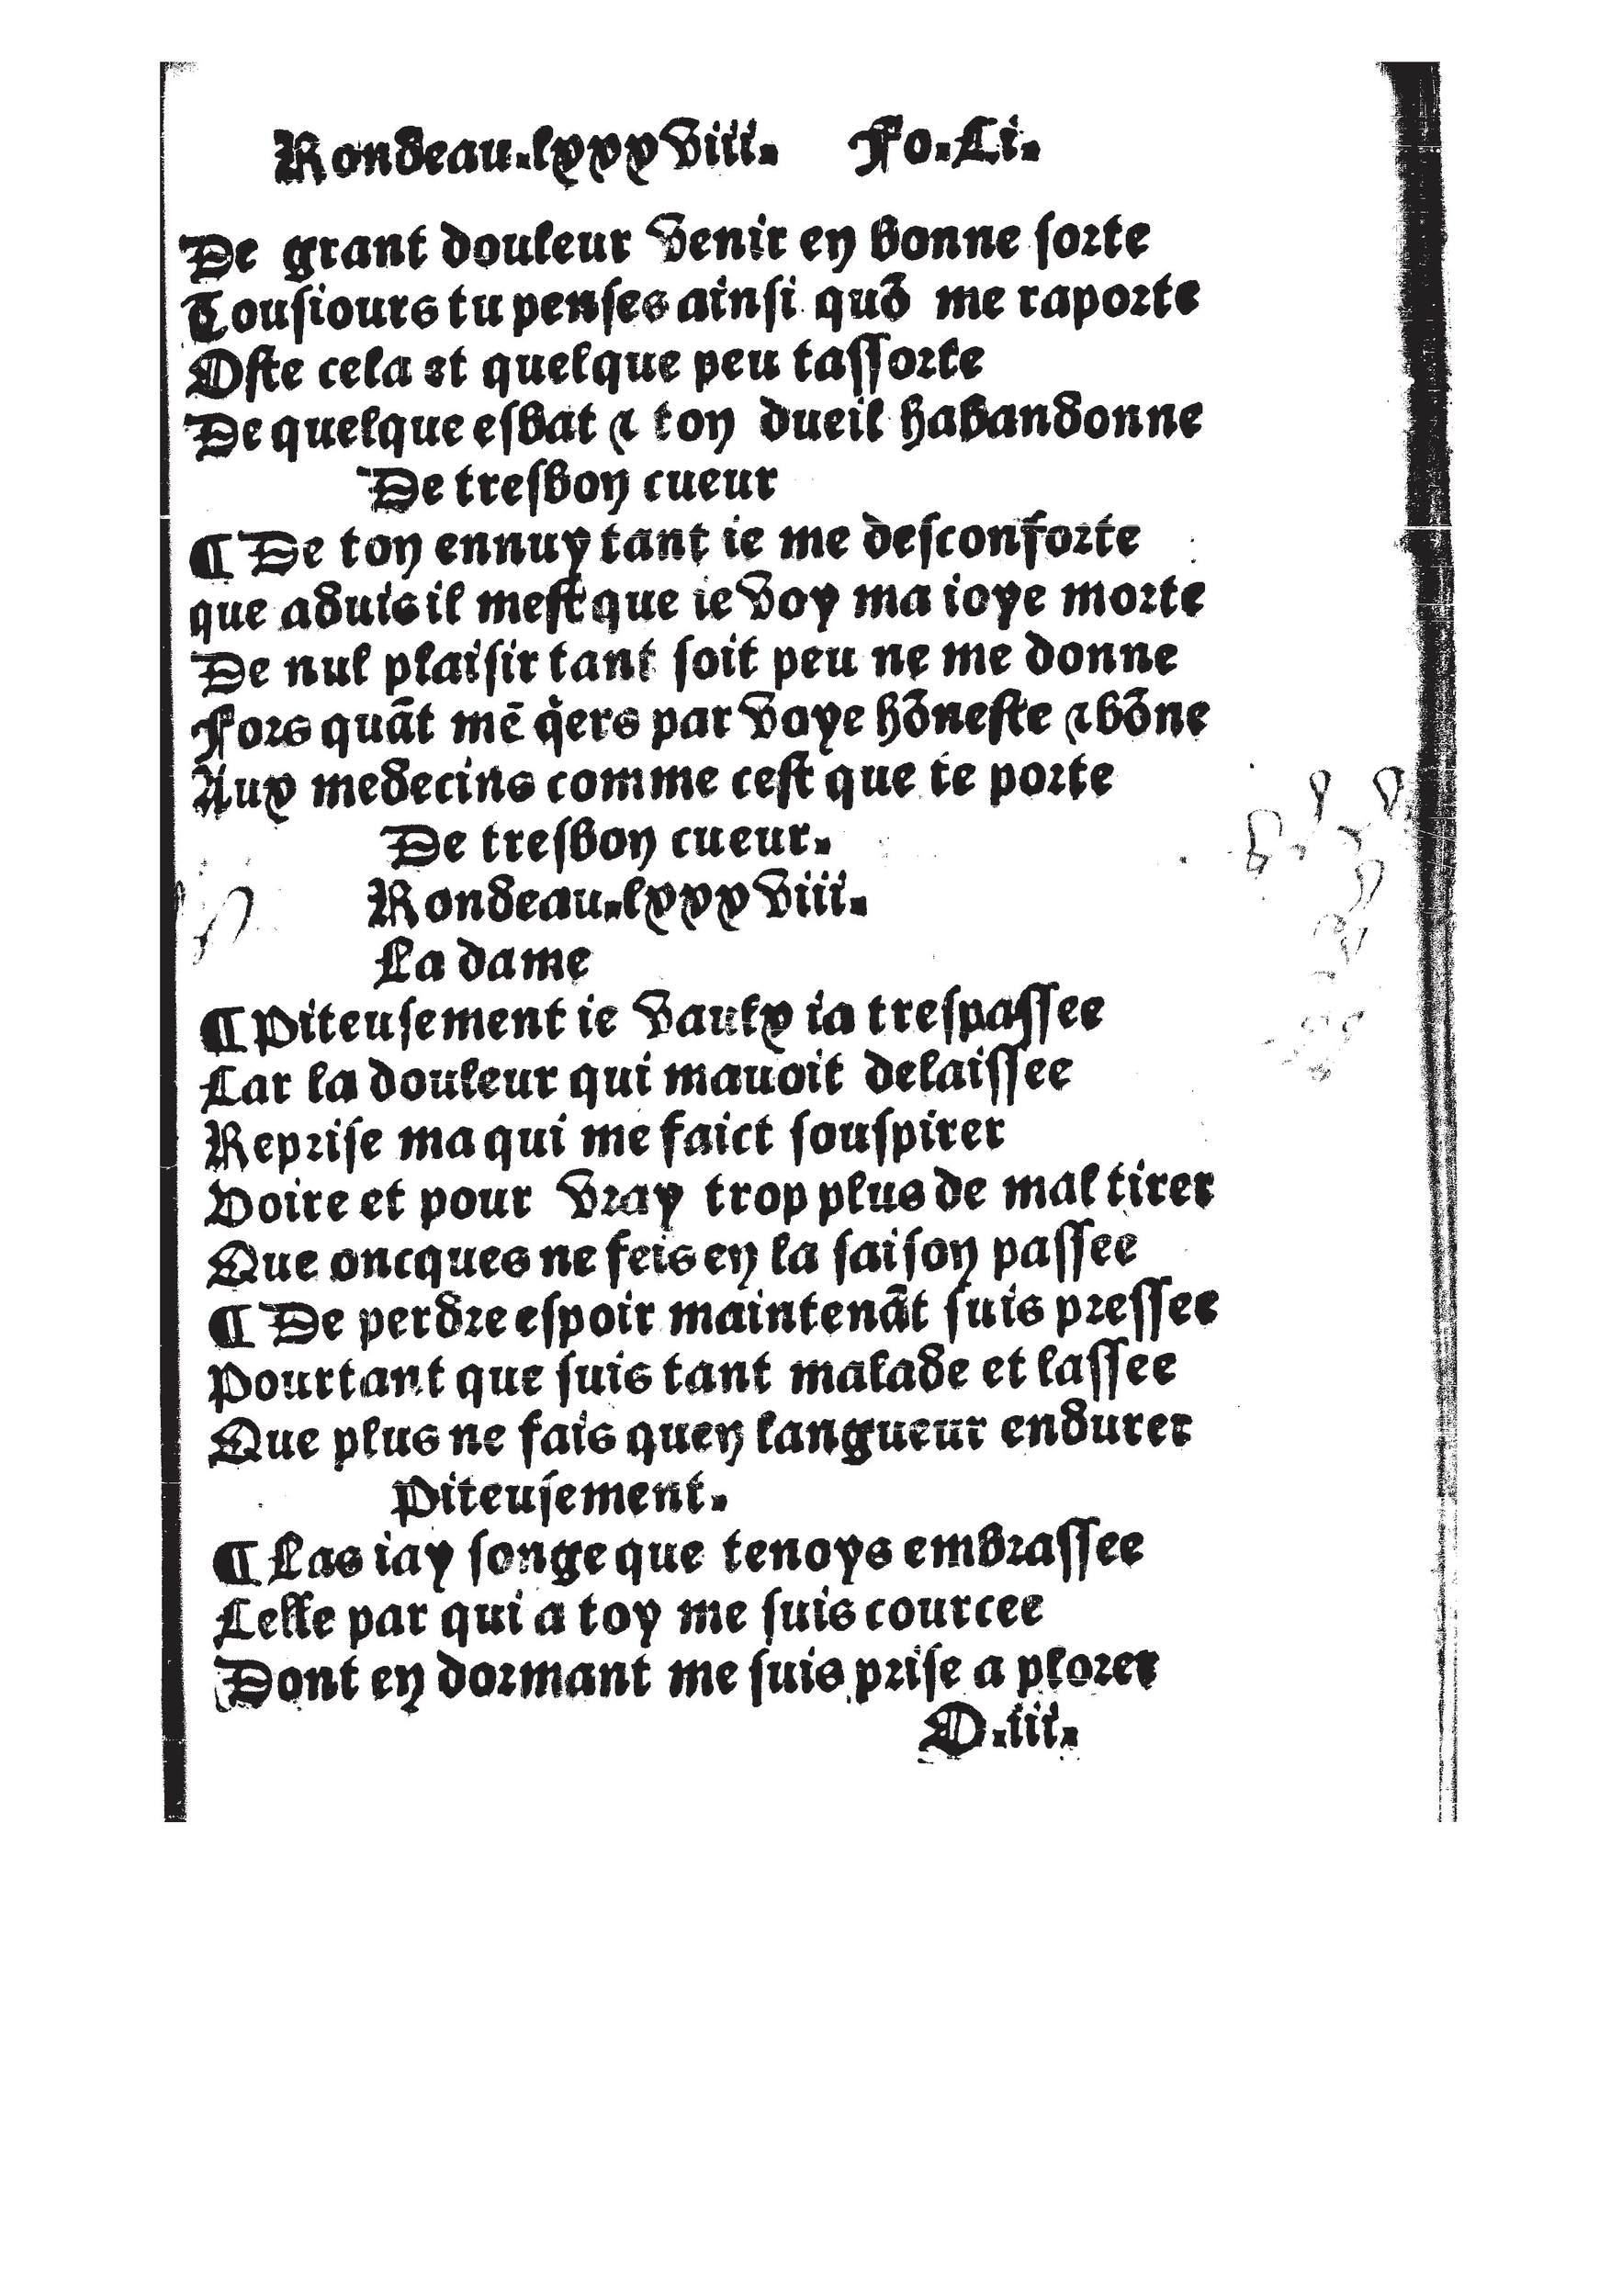 Rondeau.lxxxviii. Fo.Li.
De grant douleur venir en bonne sorte
Tousiours tu penses ainsi quõ me raporte
Oste cela et quelque peu tassorte
De quelque esbat ⁊ ton dueil habandonne
De tresbon cueur
¶ De ton ennuy tant ie me desconforte
que aduis il mest que ie voy ma ioye morte
De nul plaisir tant soit peu ne me donne
Fors quãt mẽ q̃ers par voye hõneste ⁊ bõne
Aux medecins comme cest que te porte
De tresbon cueur.
Rondeau.lxxxviii.
La dame
¶ Piteusement ie vaulx ia trespassee
Car la douleur qui mauoit delaissee
Reprise ma qui me faict souspirer
Voire et pour vray trop plus de mal tirer
Que oncques ne feis en la saison passee
¶ De perdre espoir maintenãt suis pressee
Pourtant que suis tant malade et lassee
Que plus ne fais quen langueur endurer
Piteusement.
¶ Las iay songe que tenoys embrassee
Celle par qui a toy me suis courcee
Dont en dormant me suis prise a plorer
D.iii.